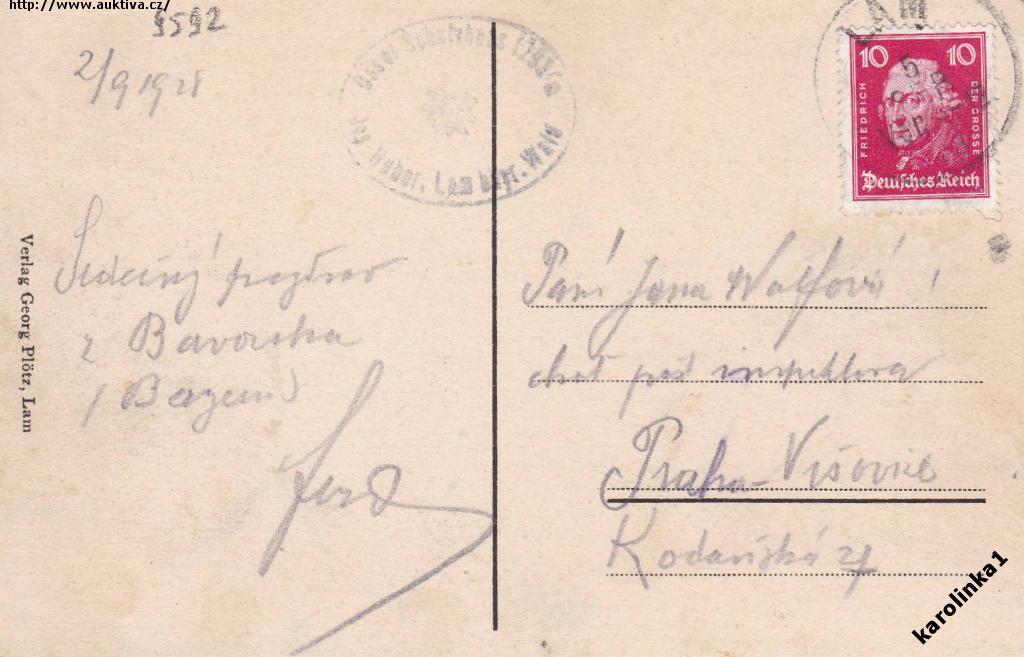 http://www.auktiva.cz/
9592
2/9 1928
Osser Schutzhaus 1293/a
Huber, Lam bayr. Wald
LAM
10 10
FRIEDRICH DER GROSSE
Deutsches Reich
Srdečný pozdrav
z Bavorska
/ Bayern)
Ferd
Verlag Georg Plötz, Lam
Paní Jana Wolfová
choť pošt inspektora
Praha-Vršovice
Kodaňská 27
karolinka1